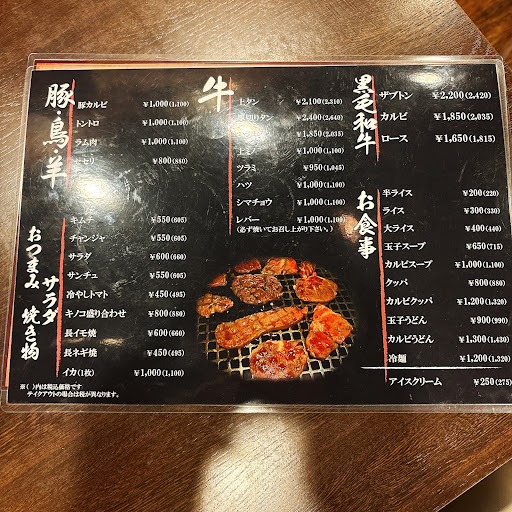 豚・鳥・羊
豚カルビ ¥1,000(1,100)
トントロ ¥1,000(1,100)
ラム肉 ¥1,000(1,100)
セセリ ¥800(880)
おつまみ サラダ 焼き物
キムチ ¥550(605)
チャンジャ ¥550(605)
サラダ ¥600(660)
サンチュ ¥550(605)
冷やしトマト ¥450(495)
キノコ盛り合わせ ¥800(880)
長イモ焼 ¥600(660)
長ネギ焼 ¥450(495)
イカ(1枚) ¥1,000(1,100)
※( )内は税込価格です
テイクアウトの場合は税が異なります。
牛
上タン ¥2,100(2,310)
厚切りタン ¥2,400(2,640)
¥1,850(2,035)
上ミノ ¥1,000(1,100)
ツラミ ¥950(1,045)
ハツ ¥1,000(1,100)
シマチョウ ¥1,000(1,100)
レバー ¥1,000(1,100)
(必ず焼いてお召し上がり下さい。)
黒毛和牛
ザブトン ¥2,200(2,420)
カルビ ¥1,850(2,035)
ロース ¥1,650(1,815)
お食事
半ライス ¥200(220)
ライス ¥300(330)
大ライス ¥400(440)
玉子スープ ¥650(715)
カルビスープ ¥1,000(1,100)
クッパ ¥800(880)
カルビクッパ ¥1,200(1,320)
玉子うどん ¥900(990)
カルビうどん ¥1,300(1,430)
冷麺 ¥1,200(1,320)
アイスクリーム ¥250(275)